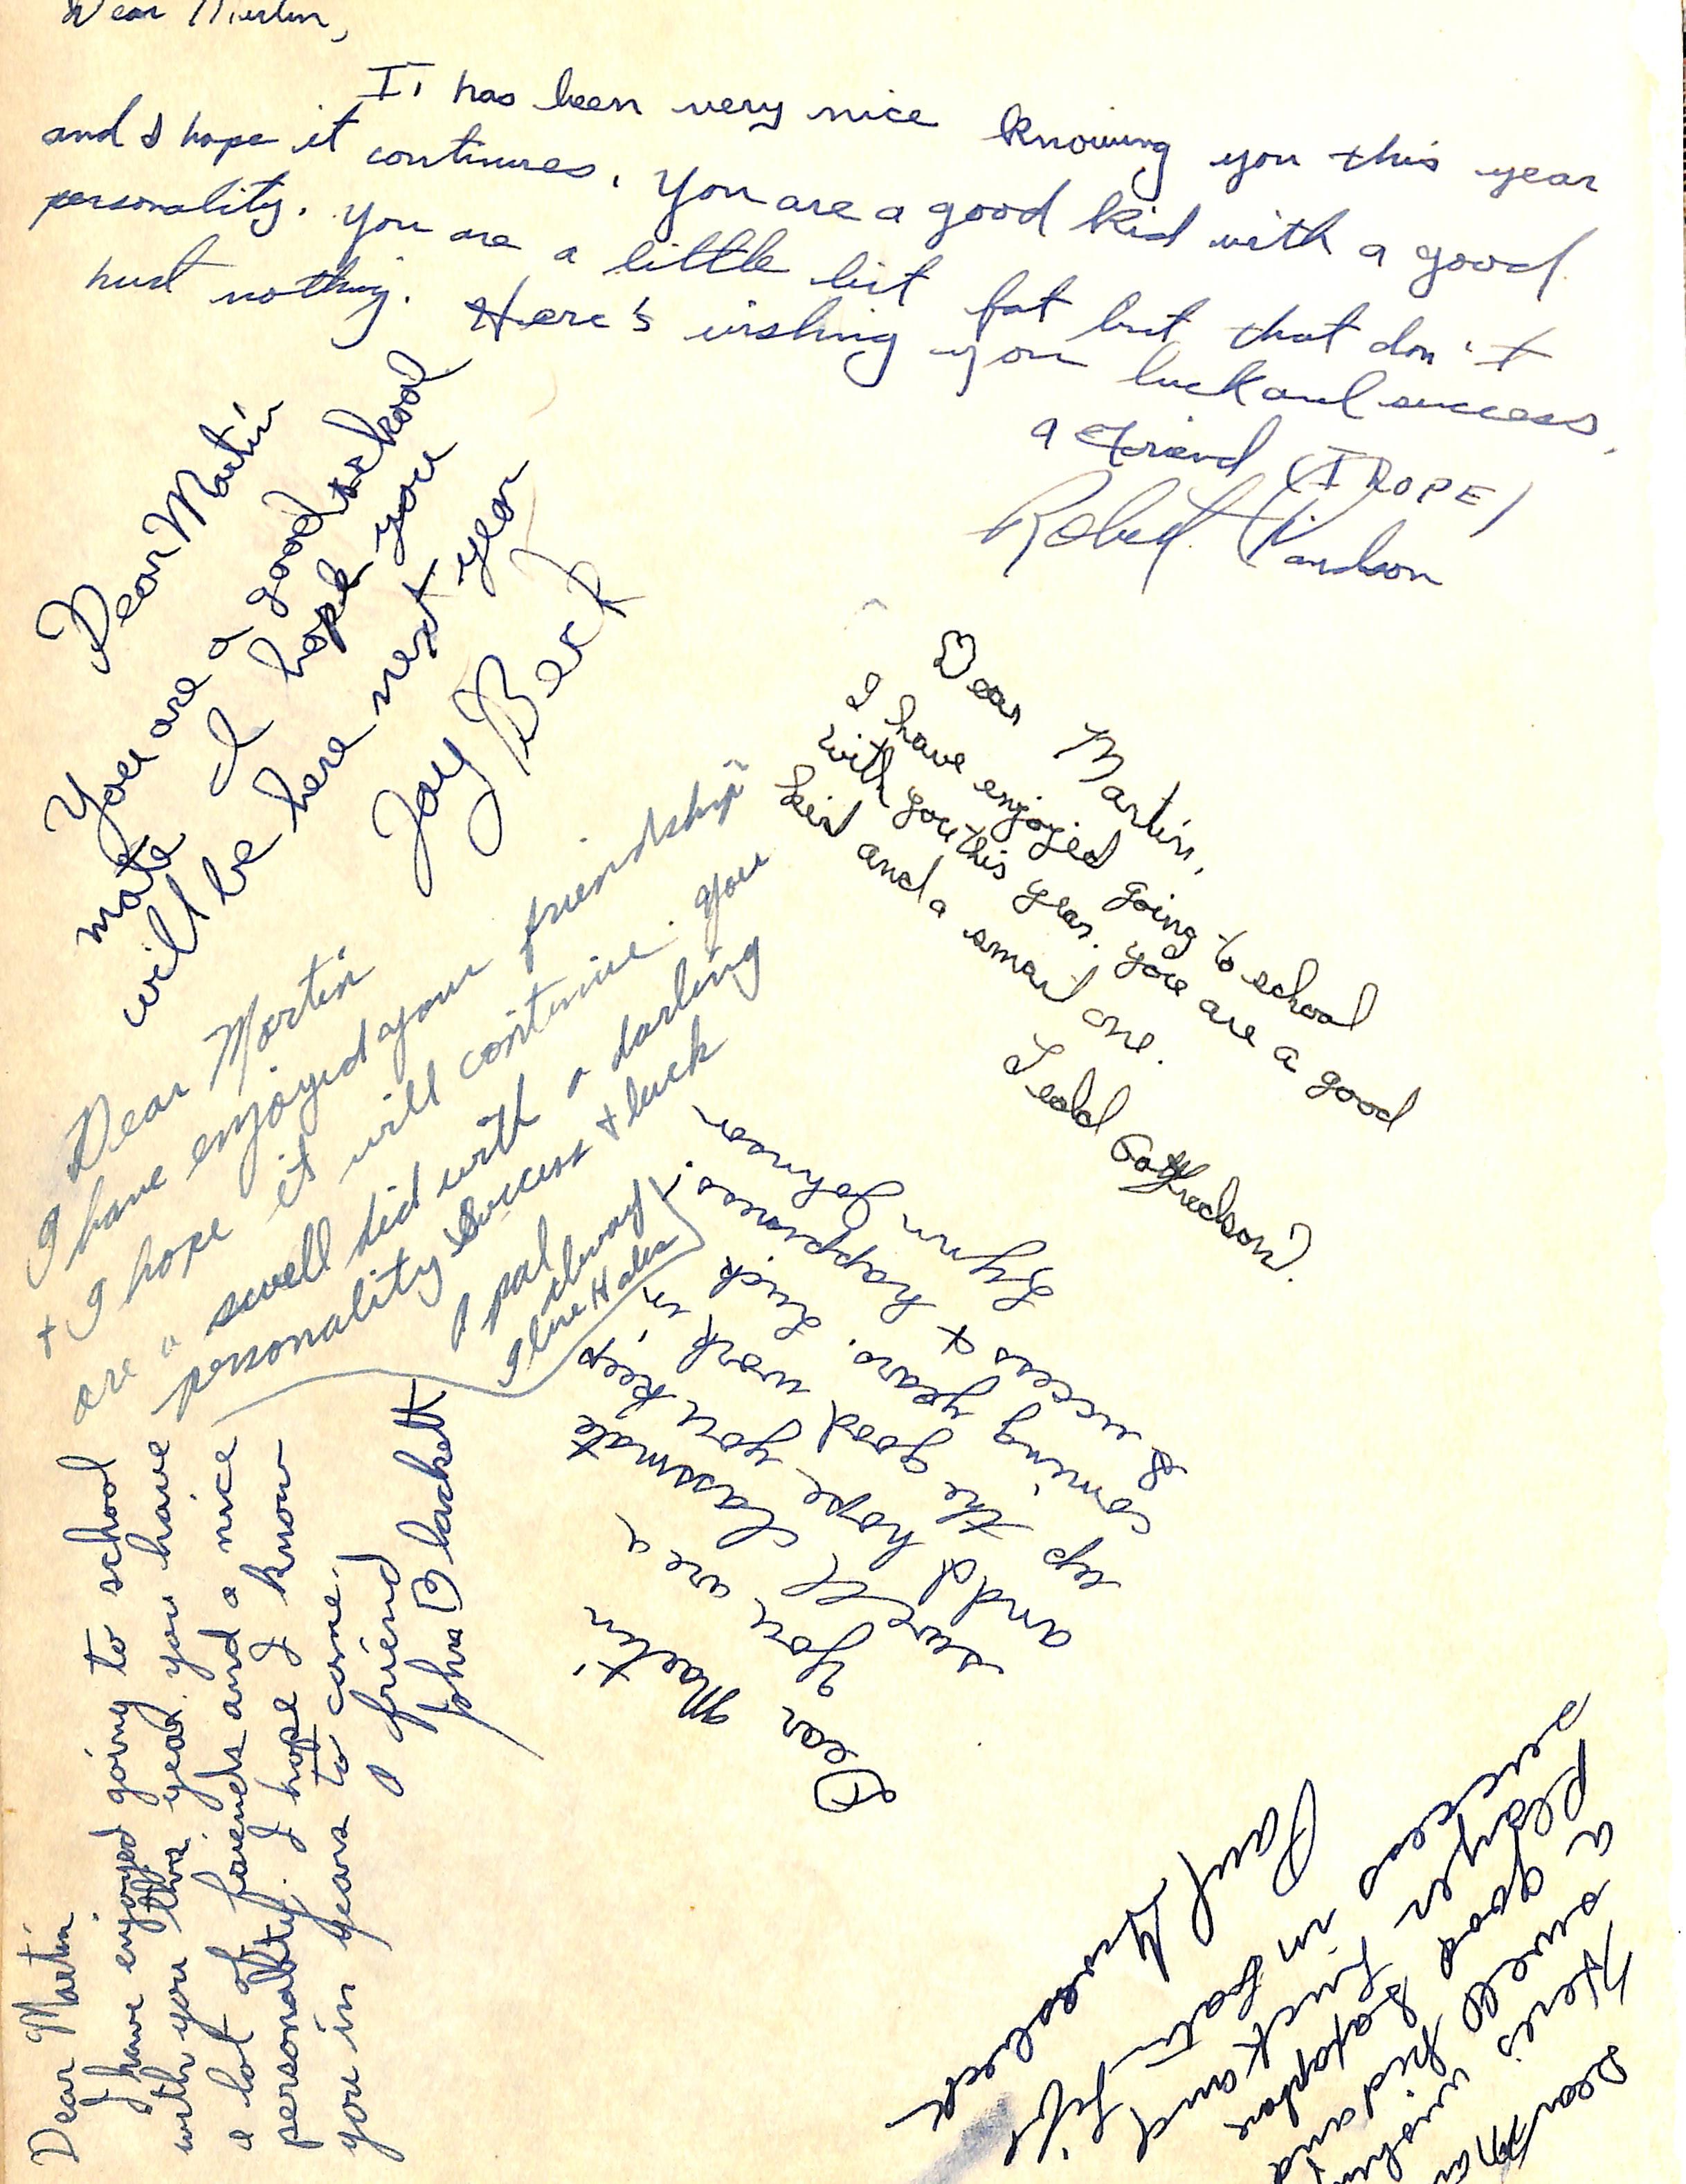 Dear Martin,
It has been very nice knowing you this year
and I hope it continues. You are a good kid with a good
personality. You are a little bit fat but that don't
hurt nothing. Here's wishing you luck and success.
a friend (I HOPE)
Robert
Dear Martin
You are a good school
mate I hope you
will be here next year
Jay Beck
Dear Martin,
I have enjoyed going to school
with you this year. You are a good
kid and a smart one.
Leold Gottfredson
Dear Martin
I have enjoyed your friendship
+ I hope it will continue. You
are a swell kid with a darling
personality Success + luck
A pal always
Dear Martin
You are a
swell classmate
and I hope you keep
up the good work in
coming years. Luck in
Success & happiness.
Lynn Johnson
Dear Martin
I have enjoyed going to school
with you this year. You have
a lot of friends and a nice
personality. I hope I know
you in years to come.
A friend
John Blackett
Dear Mar
Here's wishing
a swell kid and
a good Saxophone
player luck and
success in Latin Life
Paul